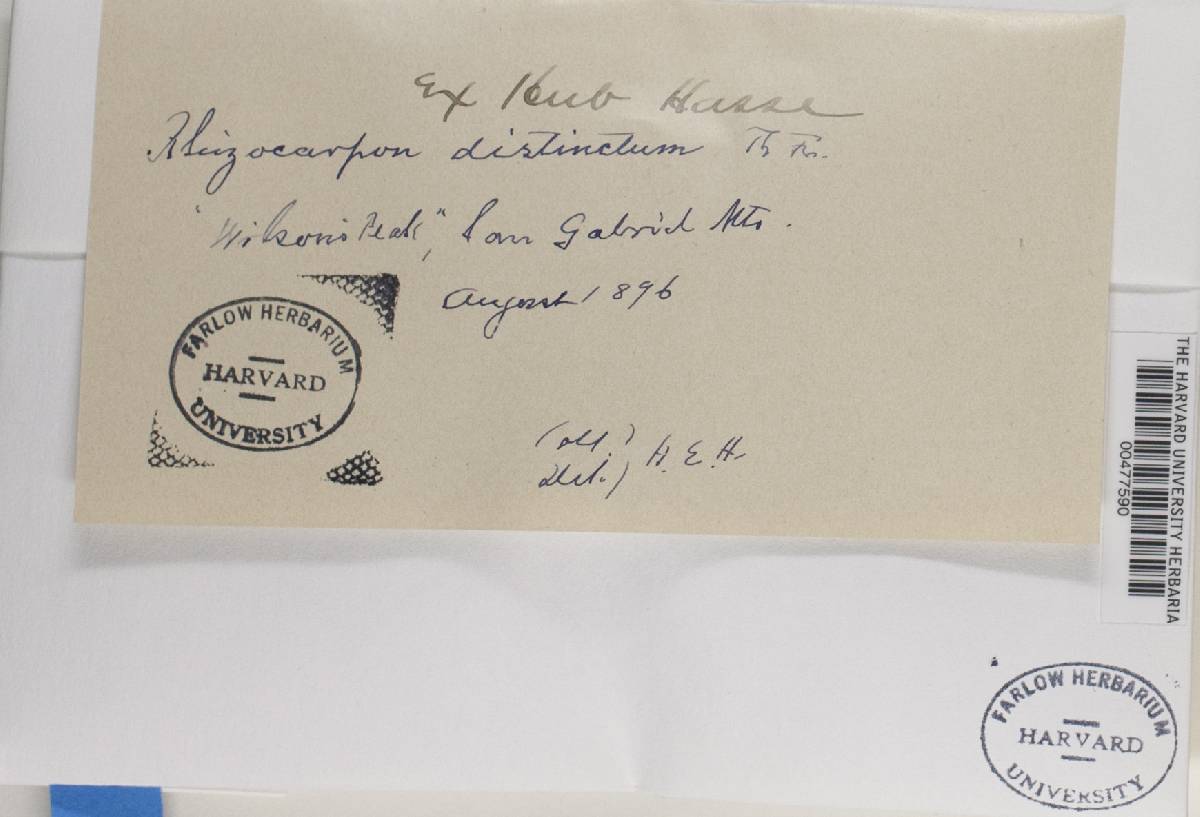 Ex Herb Hasse
Rhizocarpon distinctum Th Fr.
"Wilson's Peak", San Gabriel Mts.
August 1896
FARLOW HERBARIUM
HARVARD
UNIVERSITY
Coll. }
Det. } H. E. H.
THE HARVARD UNIVERSITY HERBARIA
00477590
FARLOW HERBARIUM
HARVARD
UNIVERSITY